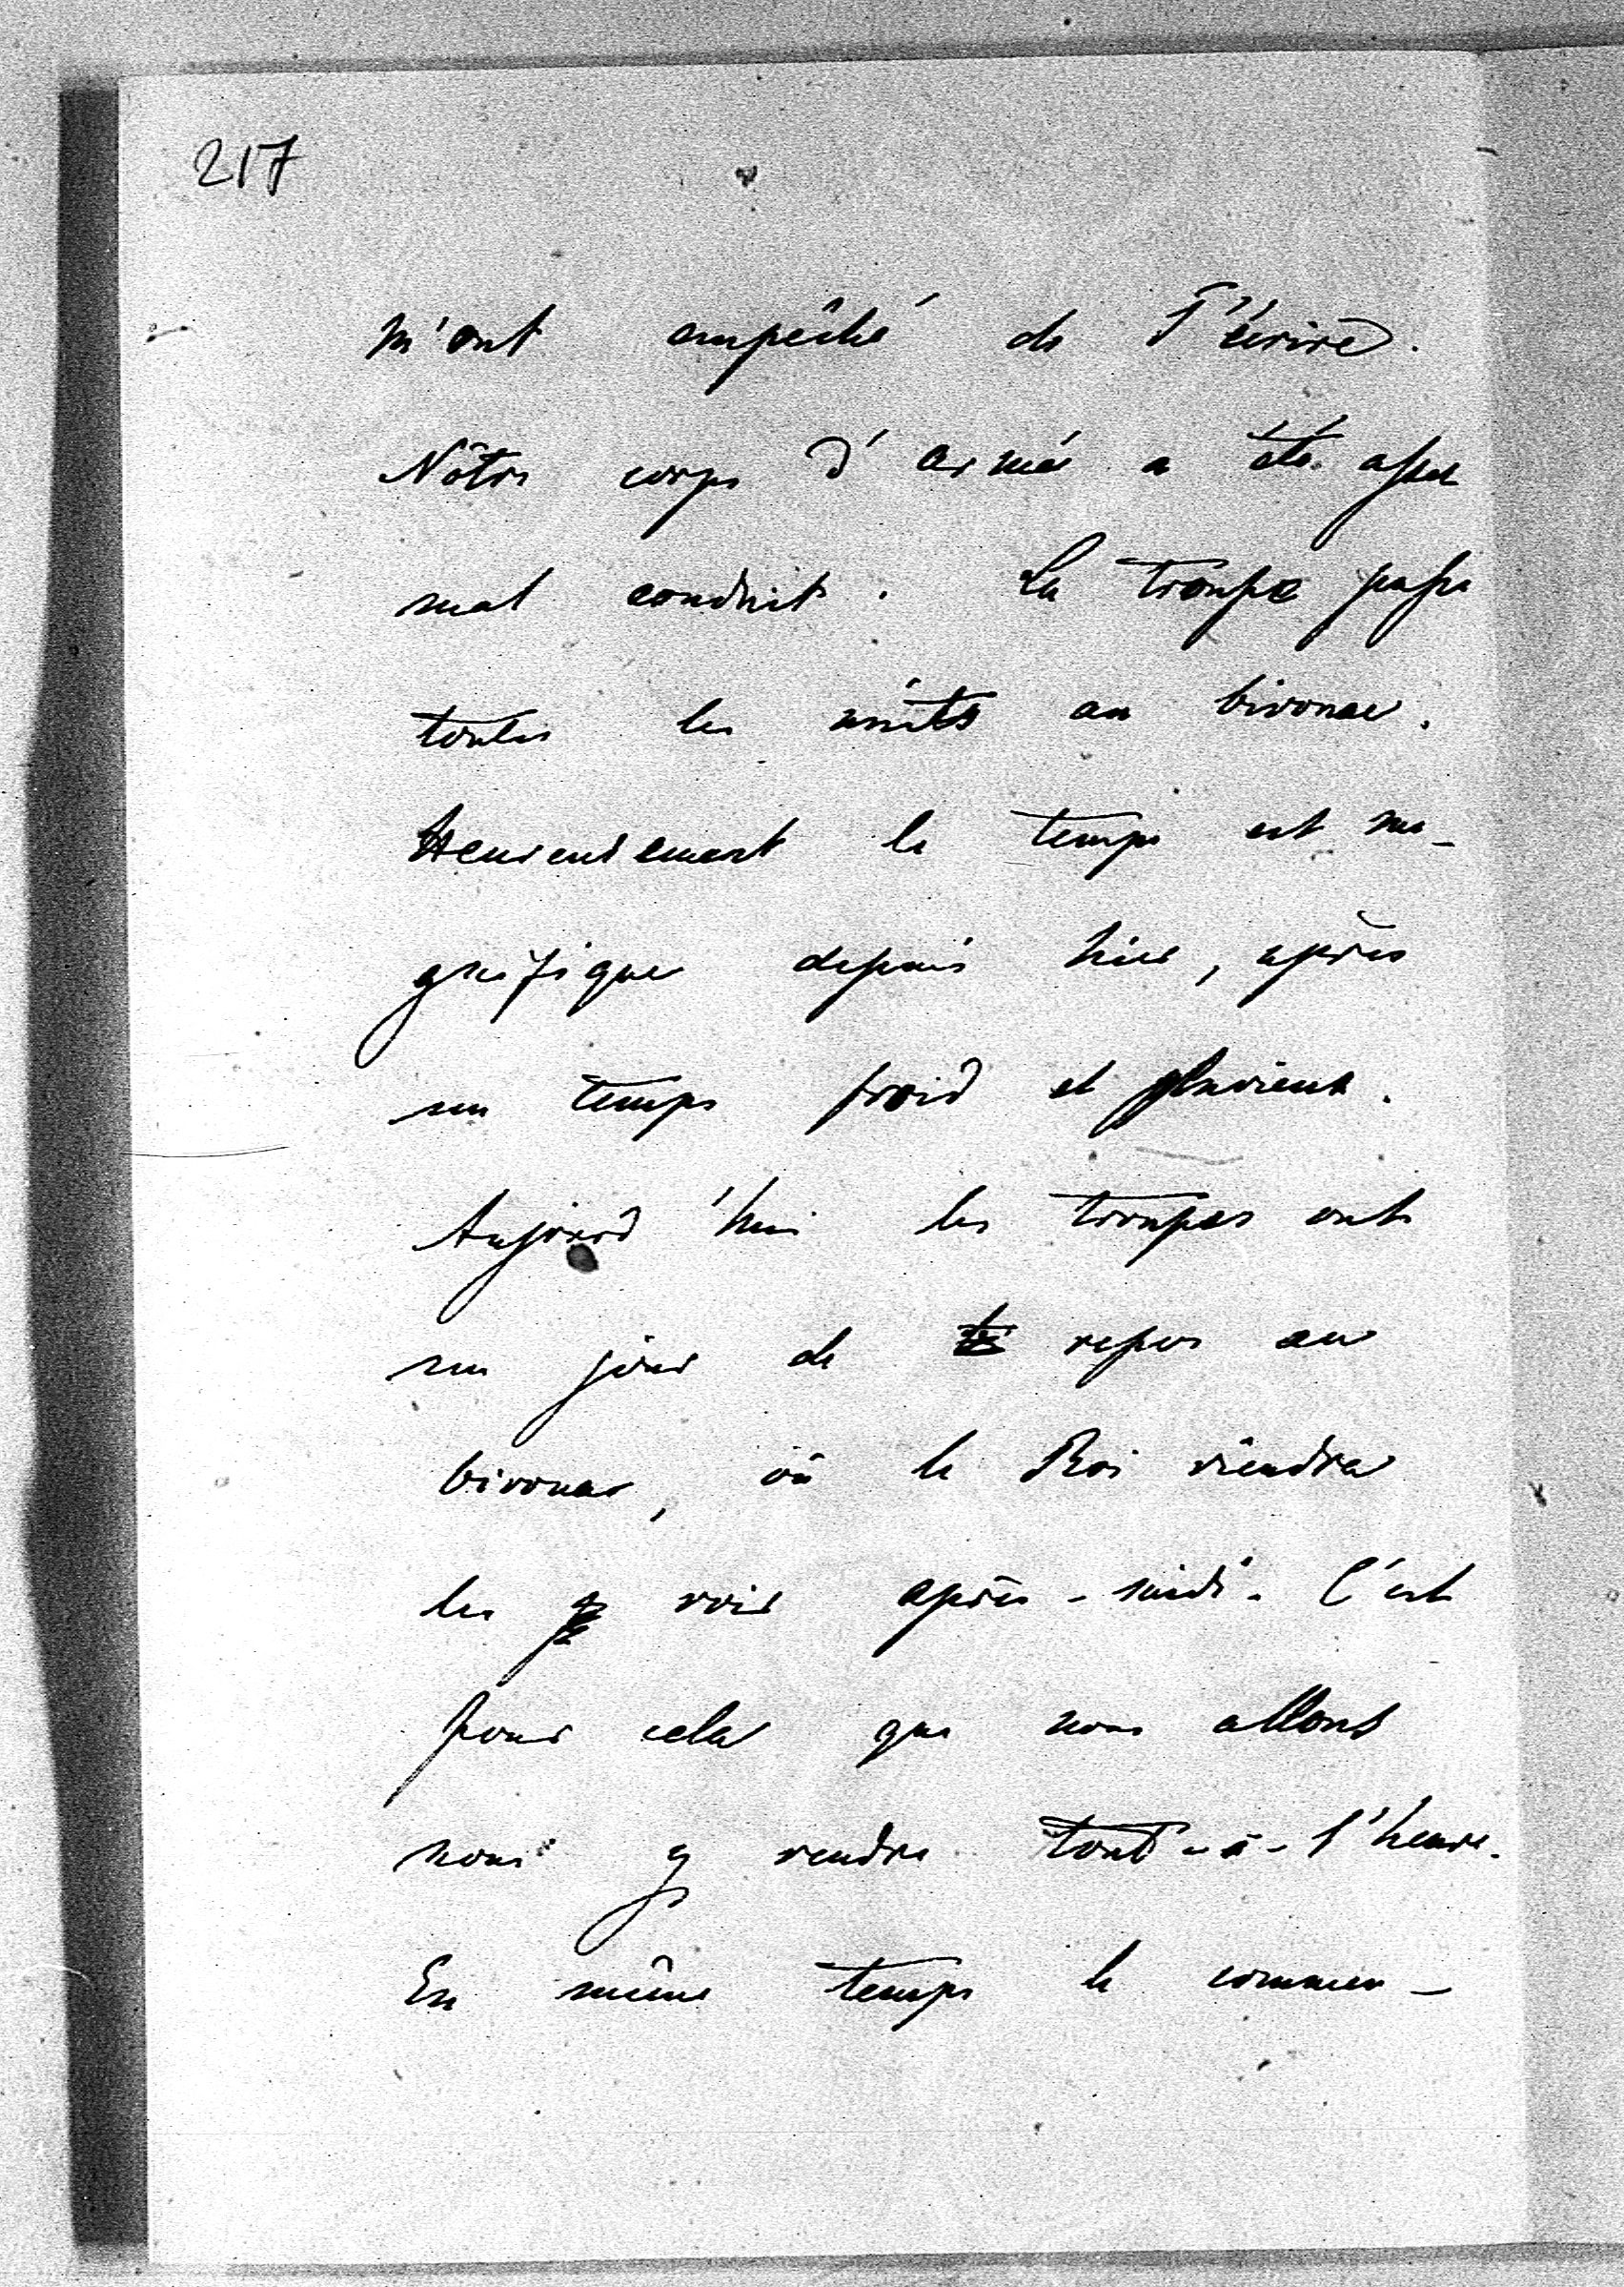 217
m'ont empêché de T'écrire.
Nôtre corps d'armée a été assez
mal conduit. La troupe passe
toutes les nuits au bivouac.
Heureusement le temps est ma-
gnifique depuis hier, après
un temps froid et pluvieux.
Aujourd'hui les troupes ont
un jour de repos au
bivouac, où le Roi viendra
les voir après-midi. C'est
pour cela que nous allons
nous y rendre tout-à-l'heure.
En même temps le comman-